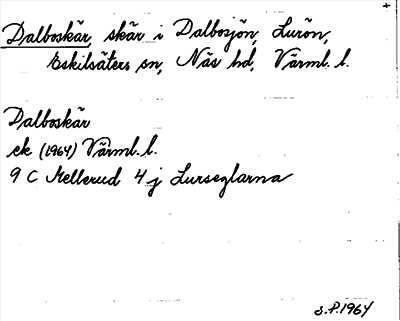 Dalboskär, skär i Dalbosjön, Lurön,
Eskilsäters sn, Näs hd, Värml. l.
Dalboskär
ek (1964) Värml. l.
9 C Mellerud 4 j Lurseglarna
S.P. 1964